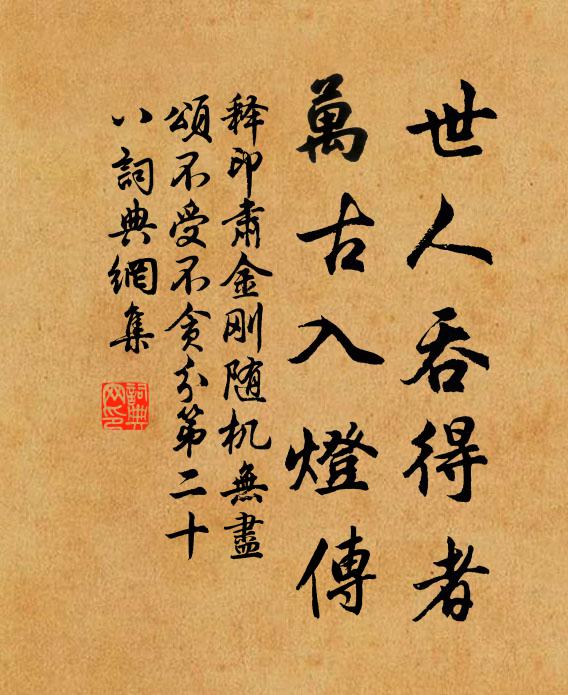 世人吞得者
萬古入燈傳
释印肃金刚随机無盡
頌不受不贪分第二十
八詞典網集
詞典网印